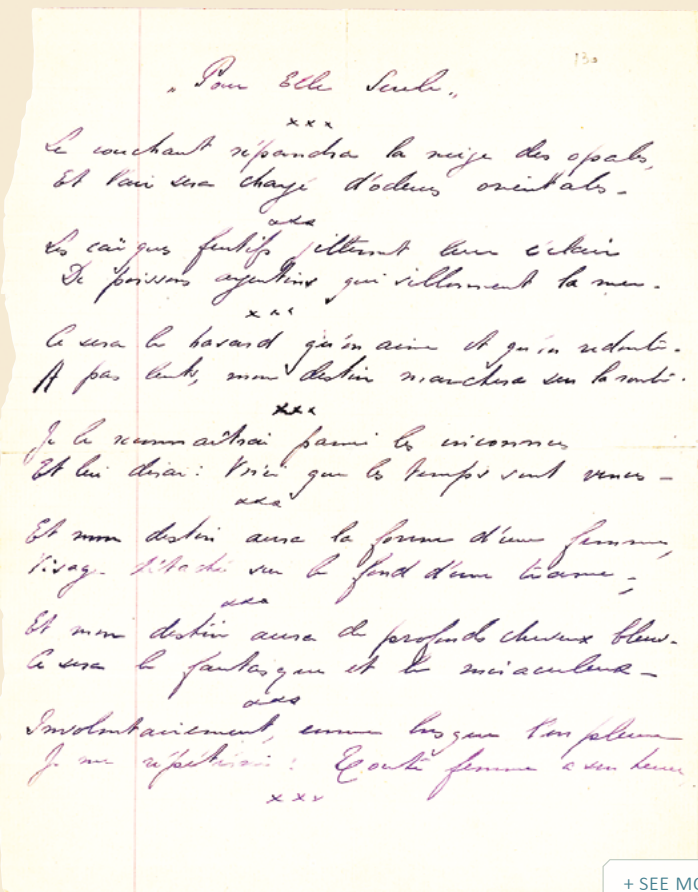 130
„Pour Elle Seule„
xxx
Le couchant répandra la neige des opales,
Et l'air sera chargé d'odeurs orientales.
xxx
Les caïques furtifs jetteront leur éclair
De poissons argentins qui sillonnent la mer.
xxx
Ce sera le hasard qu'on aime et qu'on redoute.
A pas lents, mon destin marchera sur la route.
xxx
Je le reconnaîtrai parmi les inconnus
Et lui dirai: Voici que les temps sont venus –
xxx
Et mon destin aura la forme d'une femme,
Visage détaché sur le fond d'une trame;
xxx
Et mon destin aura de profonds cheveux bleus.
Ce sera le fantasque et le miraculeux –
xxx
Involontairement, comme lorsque l'on pleure
Je me répéterai: Toute femme a son heure,
xxx
+ SEE MO